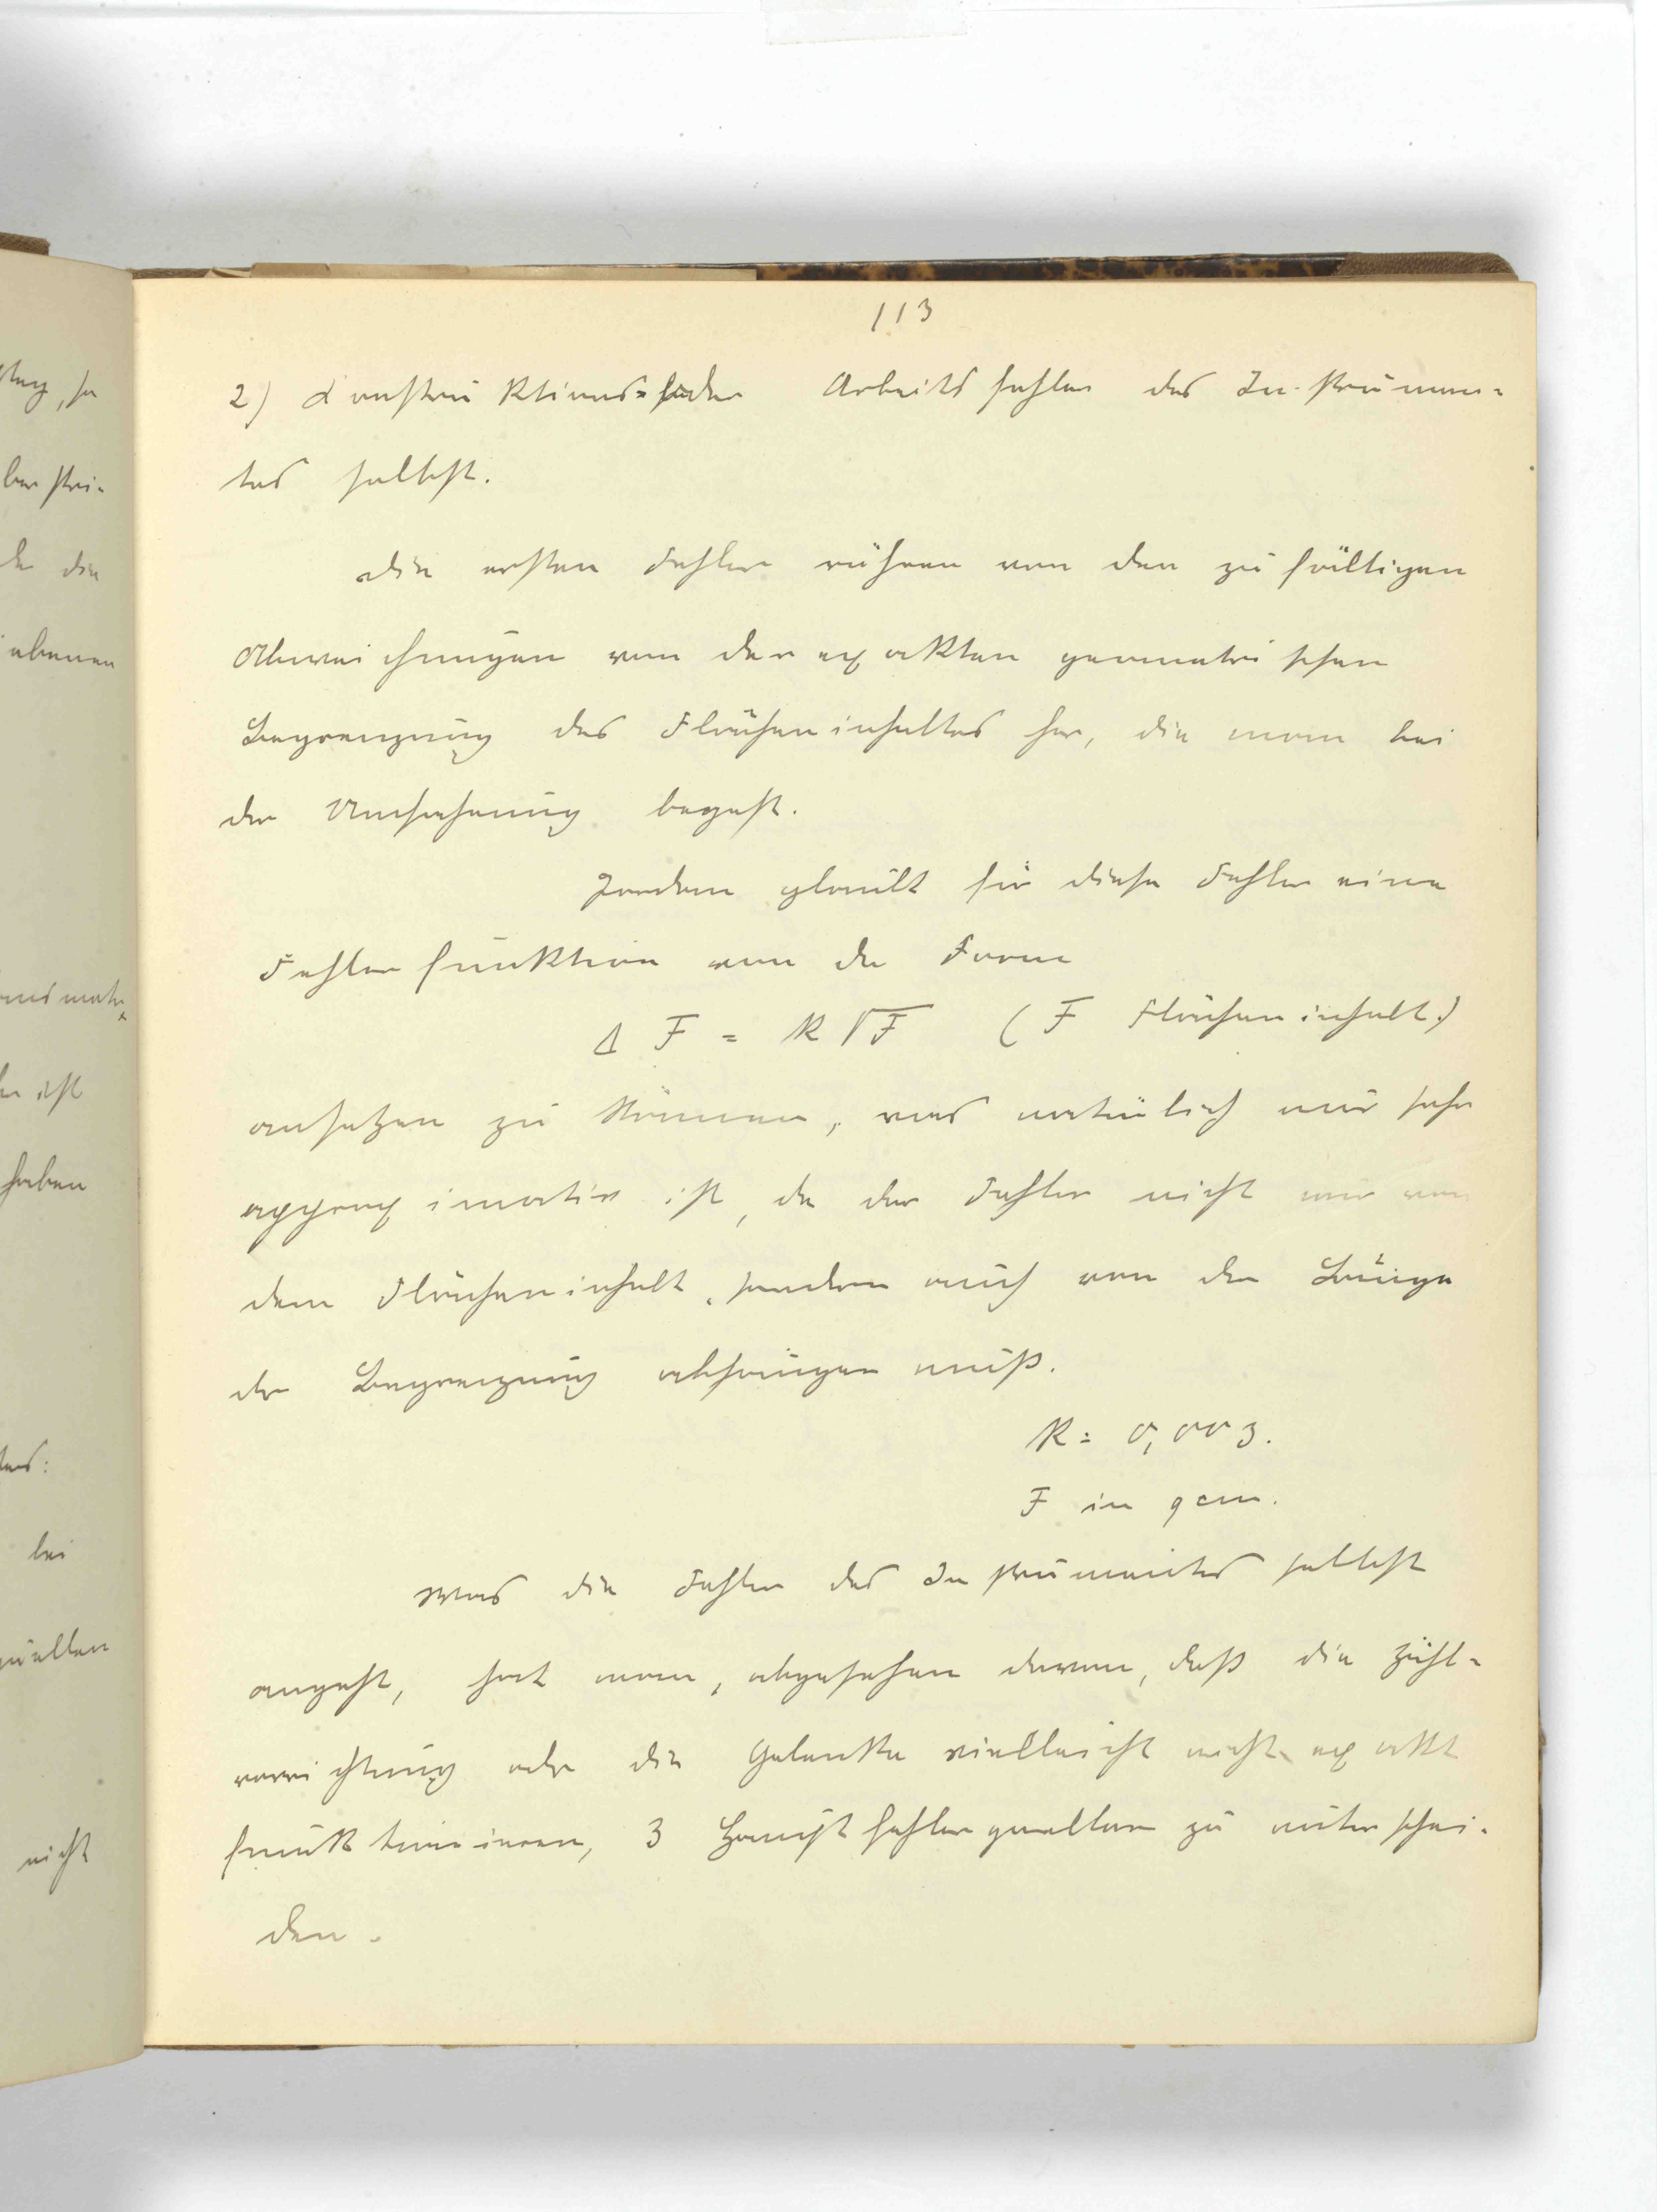 113
2) Konstruktions- oder Arbeitsfehler des Instrumen-
tes selbst.
Die ersten Fehler rühren von den zufälligen
Abweichungen von der exakten geometrischen
Begrenzung des Flächeninhaltes her, die man bei
der Umfahrung begeht.
glaubt für diese Fehler eine
Fehlerfunktion von der Form
Δ F = k √F (F Flächeninhalt)
ansetzen zu können, was natürlich nur sehr
approximativ ist, da der Fehler nicht nur von
dem Flächeninhalt, sondern auch von der Länge
der Begrenzung abhängen muß.
k = 0,003.
F in qcm.
Was die Fehler des Instrumentes selbst
angeht, hat man, abgesehen davon, daß die Zähl-
vorrichtung oder die Gelenke vielleicht nicht exakt
funktionieren, 3 Hauptfehlerquellen zu unterschei-
den.
, so
die
ebenen
ist
haben
bei
quellen
nicht